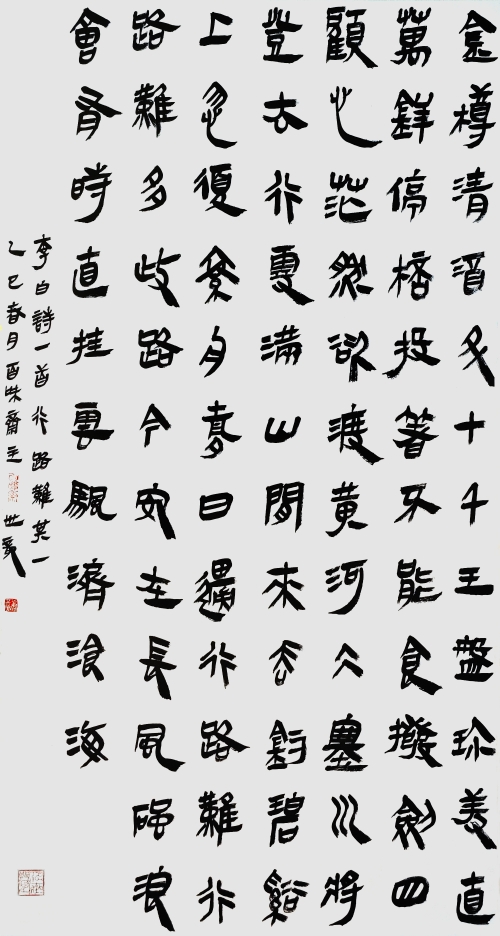 金樽清酒斗十千玉盤珍羞直
萬錢停桮投箸不能食撥劍四
顧心茫然欲渡黃河冰塞川將
登太行雪滿山閒來垂釣碧谿
上忽復乘舟夢日邊行路難行
路難多歧路今安在長風破浪
會有時直挂雲颿濟滄海
李白詩一首行路難其一
乙巳春月百味齋主世